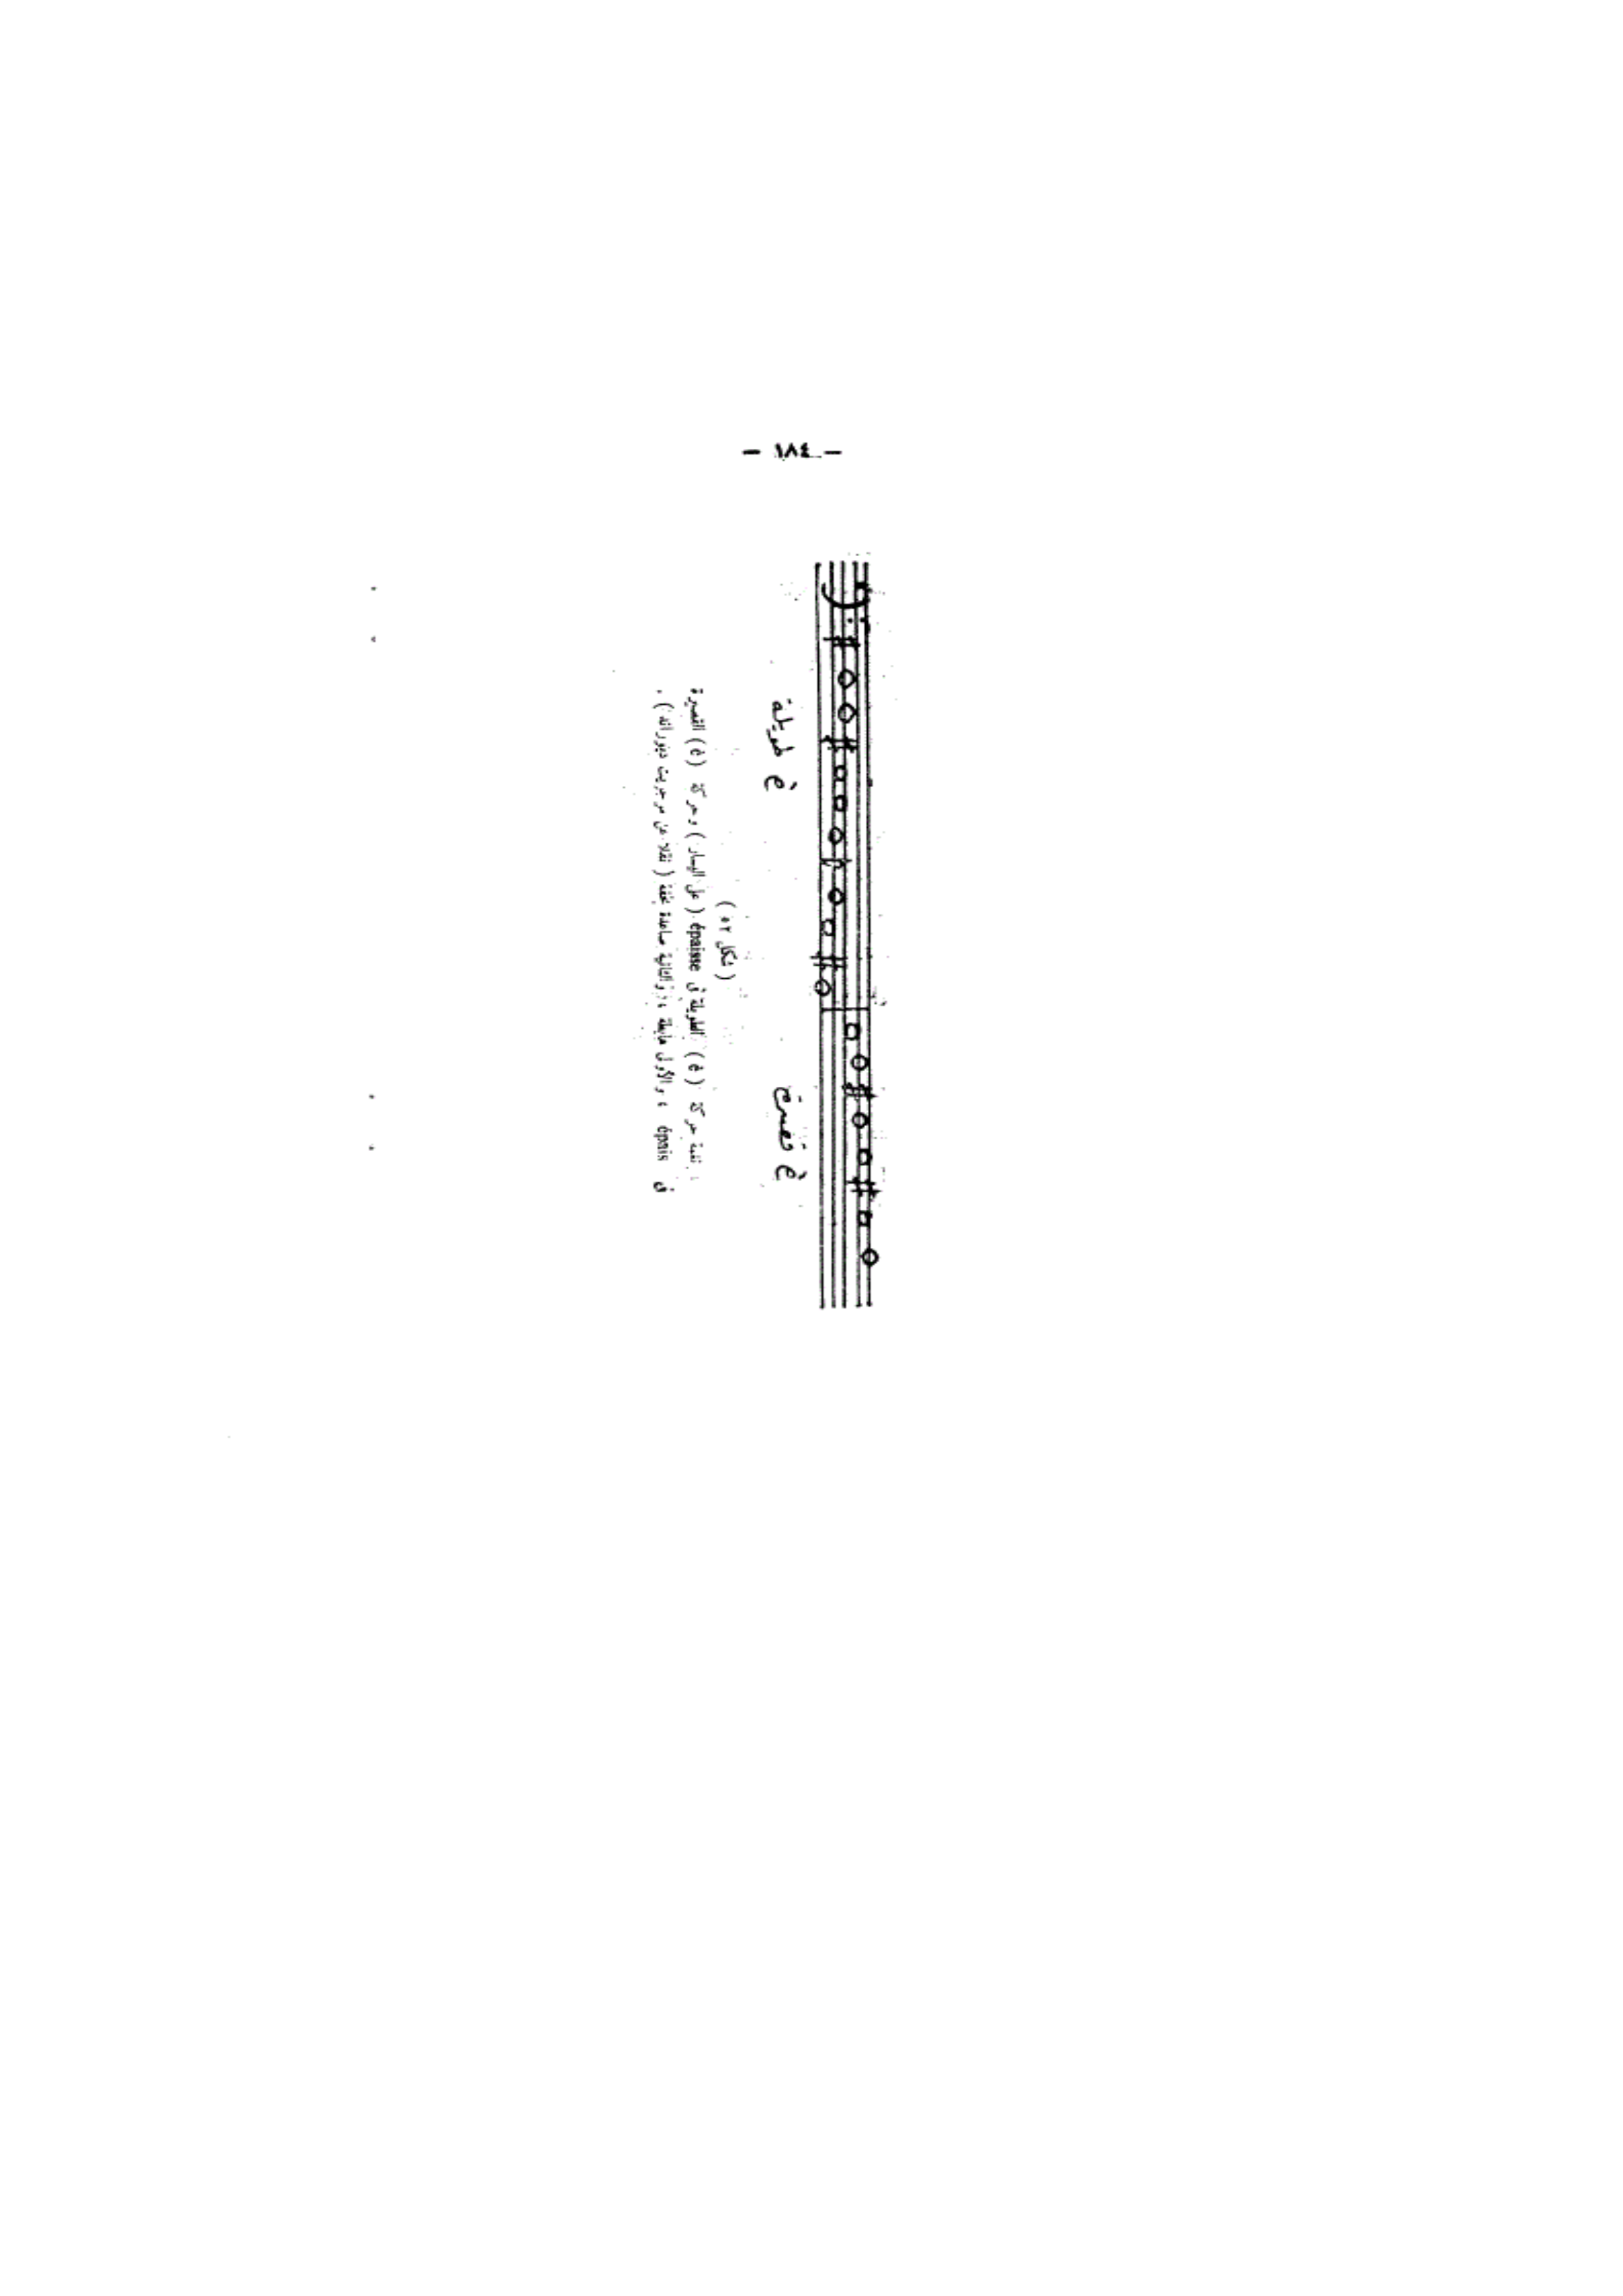 — ١٨٤ —
è طويلة
è قصيرة
( شكل ٥٢ )
نغمة حركة ( è ) الطويلة فى épaisse ( على اليسار ) وحركة ( è ) القصيرة
فى épais ، والأولى هابطة ، والثانية صاعدة بخفة ( نقلا عن مرجريت ديوراند ) .